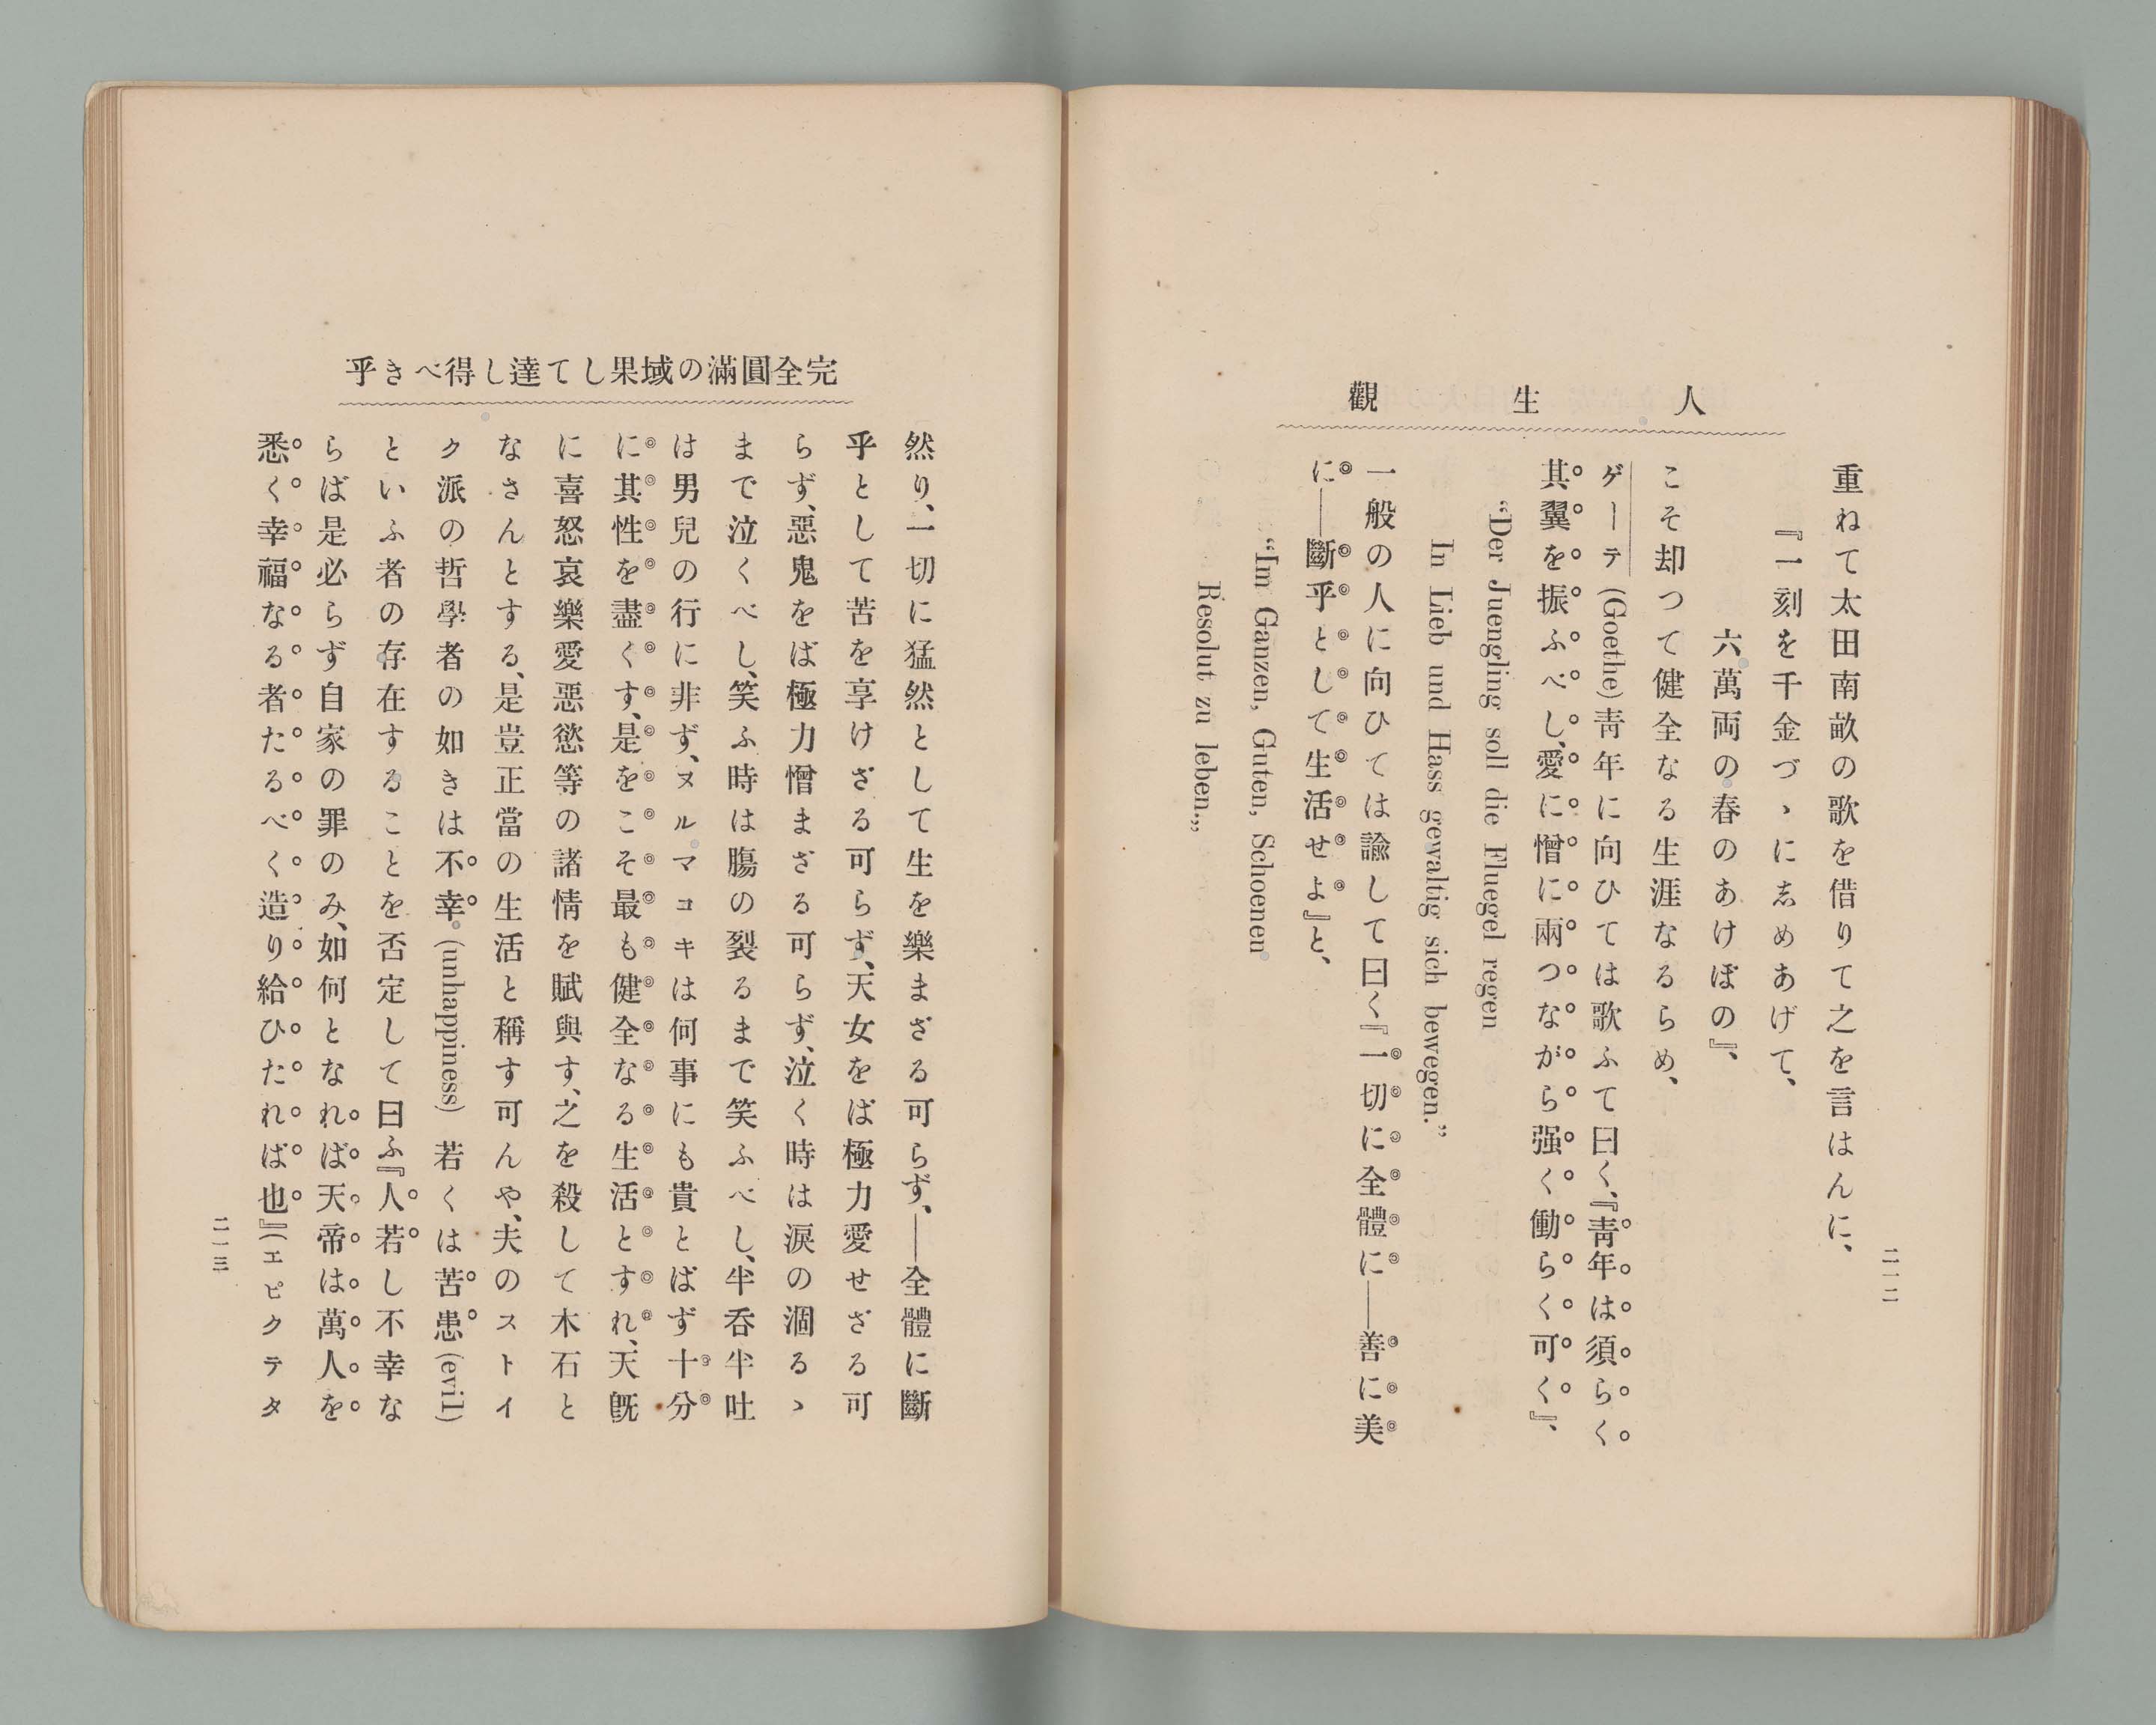 人生觀
重ねて太田南畝の歌を借りて之を言はんに、
『一刻を千金づゝにゑめあげて、
六萬両の春のあけぼの』、
こそ却つて健全なる生涯なるらめ、
ゲーテ(Goethe)靑年に向ひては歌ふて曰く、『靑年は須らく
其翼を振ふべし、愛に憎に兩つながら强く働らく可く』、
“Der Juengling soll die Fluegel regen
In Lieb und Hass gewaltig sich bewegen.”
一般の人に向ひては諭して曰く『一切に全體に―善に美
に―斷乎として生活せよ』と、
“Im Ganzen, Guten, Schoenen
Resolut zu leben.„
二一二
完全圓滿の域果して達し得べき乎
然り、一切に猛然として生を樂まざる可らず、―全體に斷
乎として苦を享けざる可らず、天女をば極力愛せざる可
らず、惡鬼をば極力憎まざる可らず、泣く時は淚の涸るゝ
まで泣くべし、笑ふ時は膓の裂るまで笑ふべし、半呑半吐
は男兒の行に非ず、ヌルマコキは何事にも貴とばず十分
に其性を盡くす、是をこそ最も健全なる生活とすれ、天既
に喜怒哀樂愛惡慾等の諸情を賦與す、之を殺して木石と
なさんとする、是豈正當の生活と稱す可んや、夫のストイ
ク派の哲學者の如きは不幸(unhappiness)若くは苦患(evil)
といふ者の存在することを否定して曰ふ『人若し不幸な
らば是必らず自家の罪のみ、如何となれば天帝は萬人を
悉く幸福なる者たるべく造り給ひたれば也』(エピクテタ
二一三